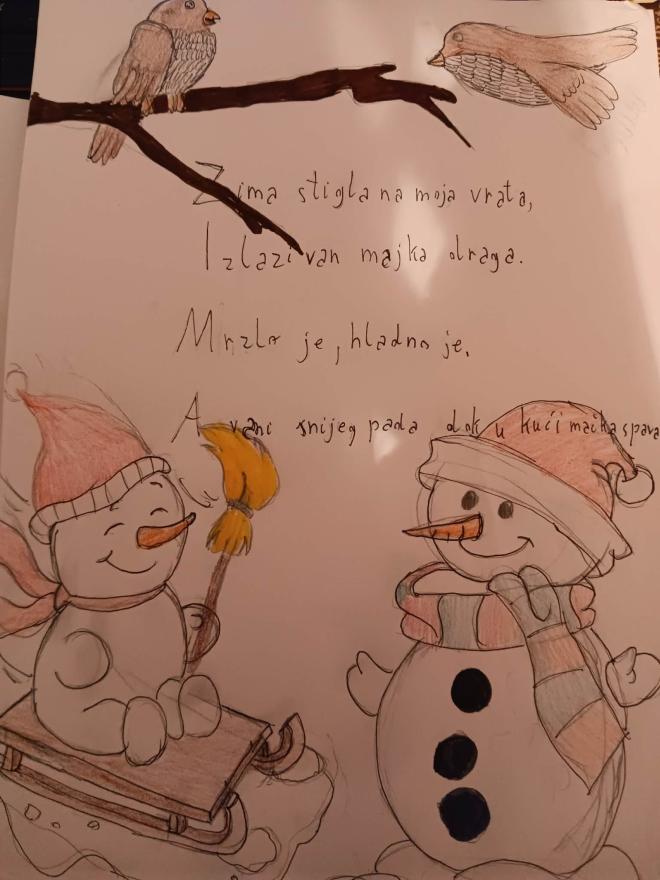 Zima stigla na moja vrata,
Izlazi van majka draga.
Mrzlo je, hladno je,
A vani snijeg pada dok u kući mačka spava